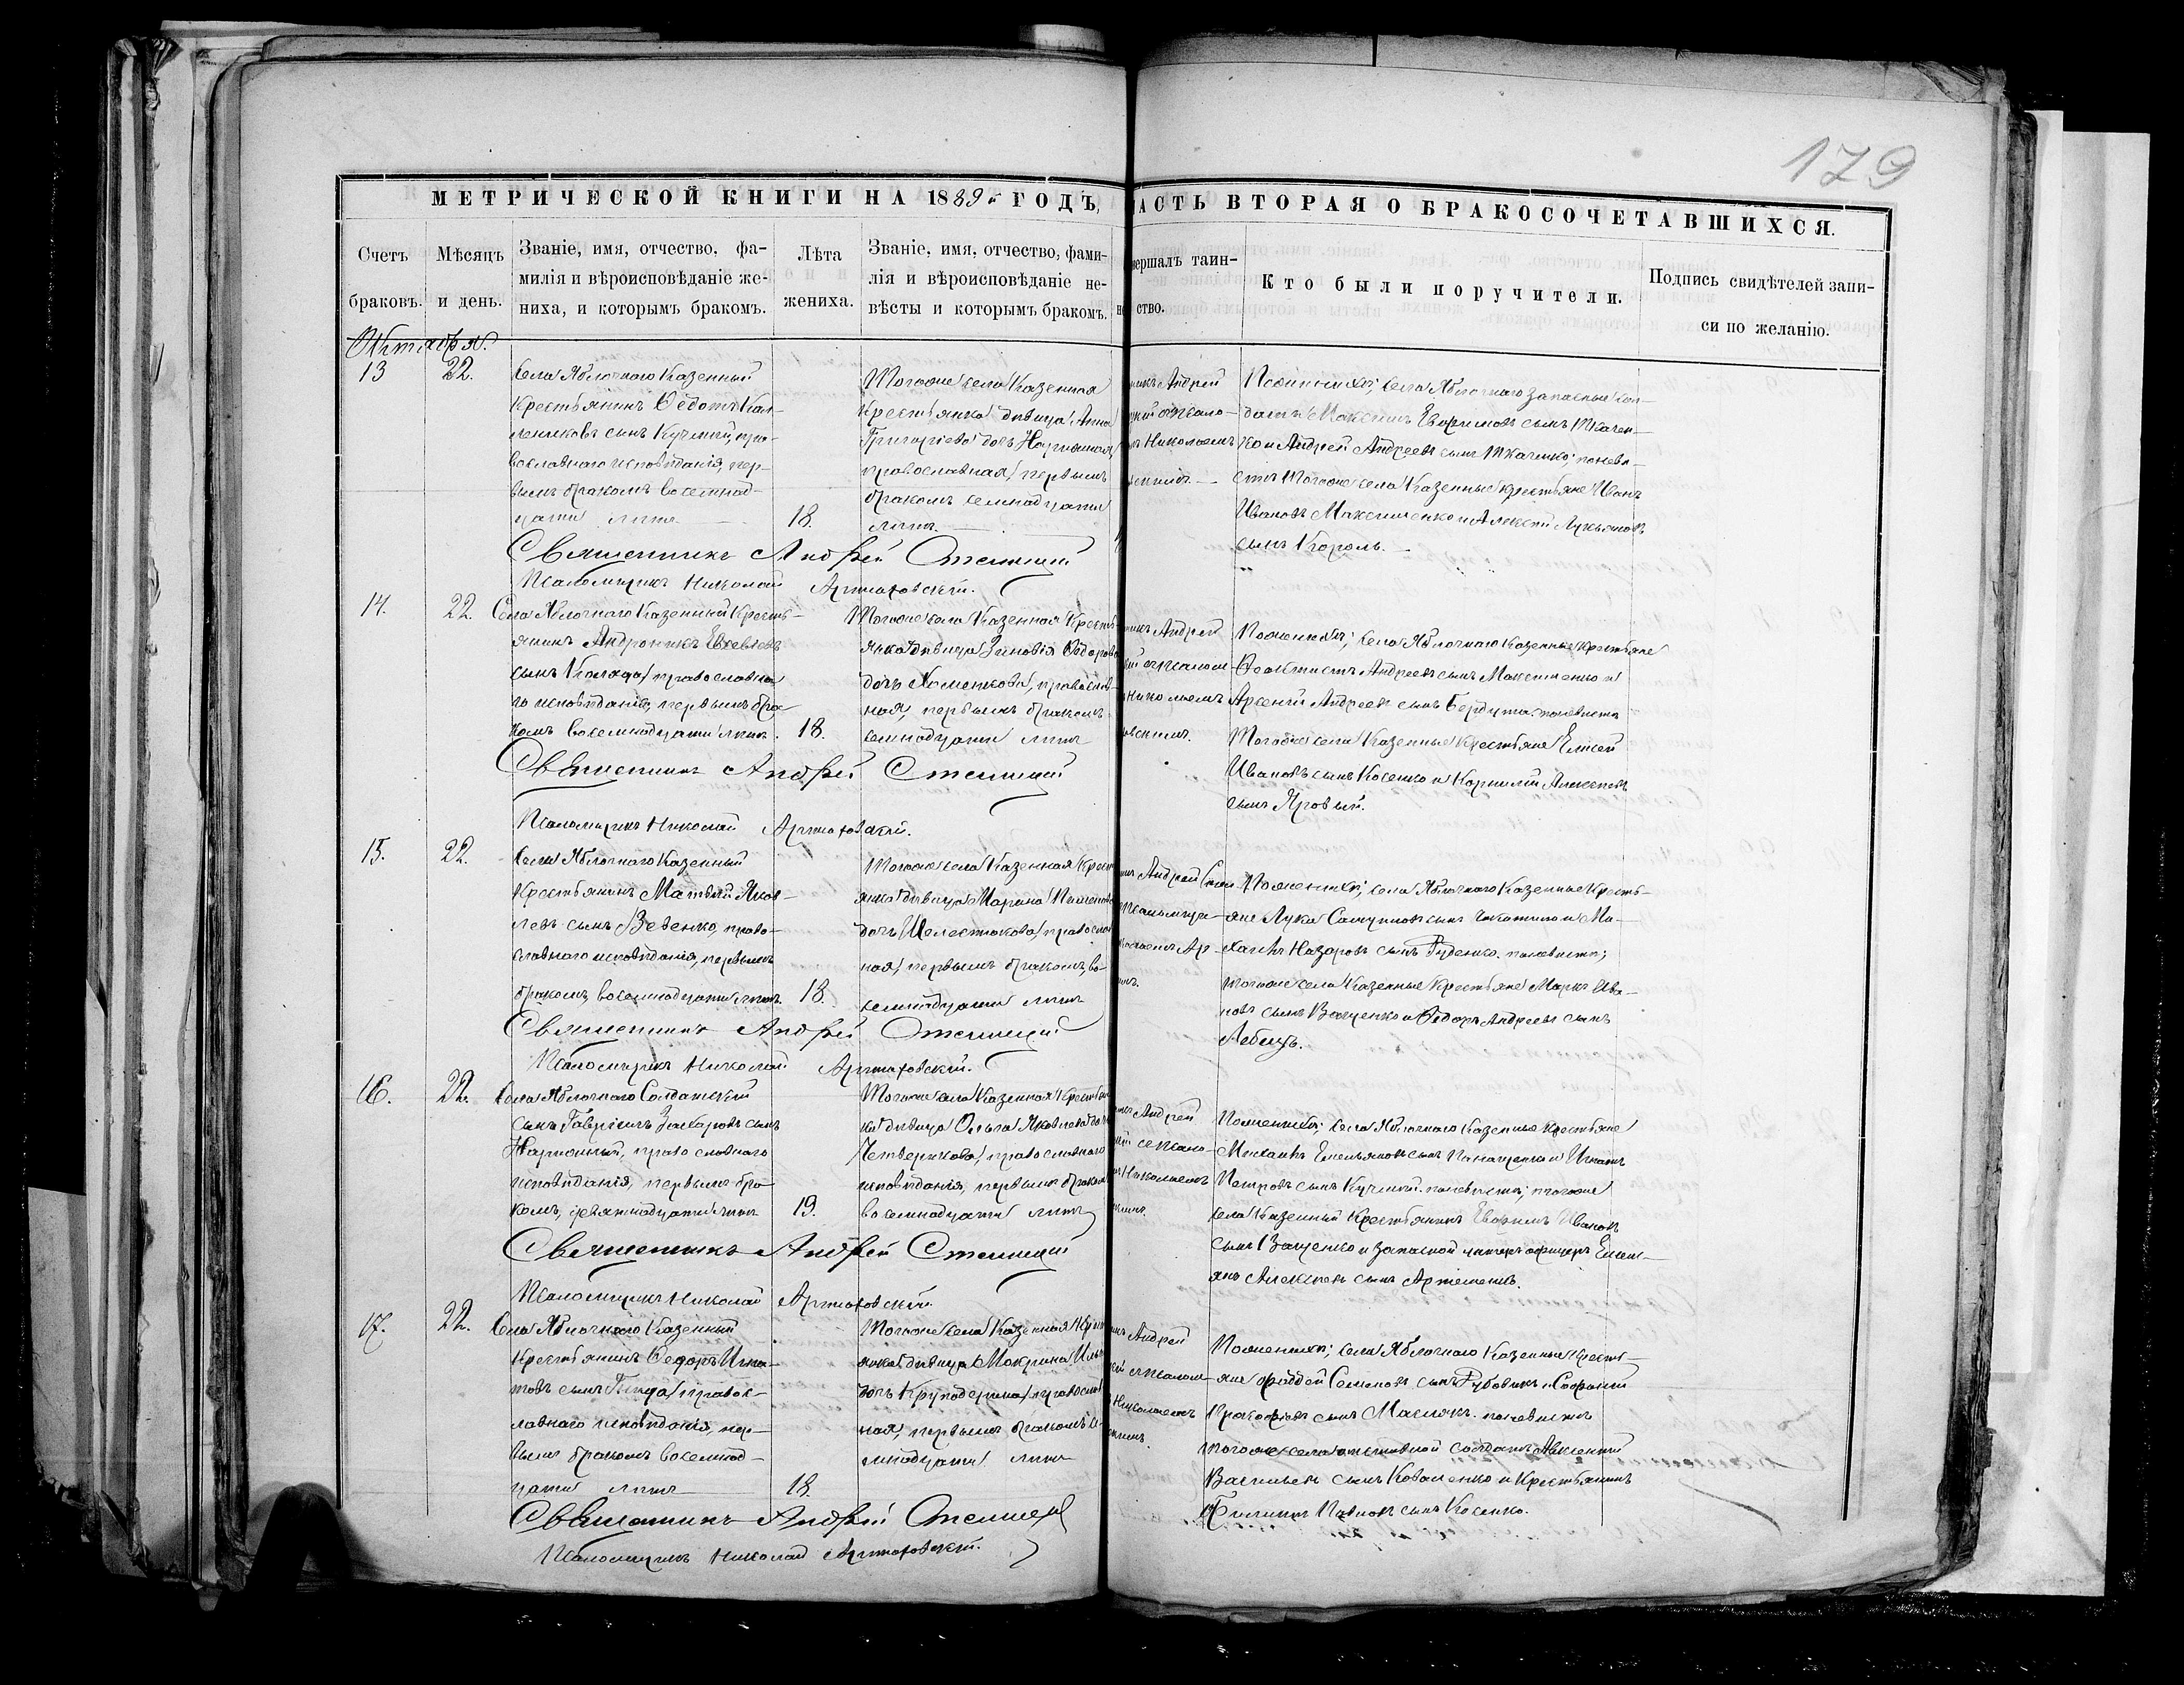 179
МЕТРИЧЕСКОЙ КНИГИ НА 1889й ГОДЪ, АСТЬ ВТОРАЯ О БРАКОСОЧЕТАВШИХСЯ.
Счетъ браковъ.
Мѣсяцъ и день.
Званіе, имя, отчество, фа-
милія и вѣроисповѣданіе же-
ниха, и которымъ бракомъ.
Лѣта
жениха.
Званіе, имя, отчество, фами-
лія и вѣроисповѣданіе не-
вѣсты и которымъ бракомъ.
вершалъ таин-
ство.
Кто были поручители.
Подпись свидѣтелей запи-
си по желанію.
Октября.
13 22.
Села Яблочнаго Казенный
Крестьянинъ Ѳедотъ Кал-
лениковъ сынъ Куцмый, пра-
вославнаго исповѣданія, пер-
вымъ бракомъ восемнад-
цати лѣтъ
18.
Тогоже села Казенная
Крестьянка дѣвица Анна
Григоріева дочь
православная, первымъ
бракомъ семнадцати
лѣтъ.
никъ Андрей
Николаемъ
села Яблочнаго запасные сол-
даты Максимъ Евфимовъ сынъ Ткачен-
ко и Андрей Андреевъ сынъ Ткаченко; поневѣ-
стѣ тогоже села Казенные крестьяне Иванъ
Ивановъ Максименко и Алексѣй Лукьяновъ
сынъ Король.
Священникъ Андрей Стеллецкій
Псаломщикъ Николай Артюховскій.
14. 22.
Села Яблочнаго Казенный Кресть-
янинъ Андроникъ Евсевіевъ
сынъ Коляда, православна
го исповѣданія, первымъ бра-
комъ восемнадцати лѣтъ.
18.
Тогоже села Казенная Кресть-
янка дѣвица Зиновія Ѳедорова
дочь Хоменкова, православ-
ная, первымъ бракомъ
семнадцати лѣтъ
никъ Андрей
Николаемъ
Поженихѣ; села Яблочнаго Казенные крестьяне
Ѳеоктистъ Андреевъ сынъ Максименко и
Арсеній Андреевъ сынъ Бердута. поневѣстѣ
Тогоже села Казенные Крестьяне Елисей
Ивановъ сынъ Косенко и Корнилій Алексѣевъ
сынъ Яровый.
Священникъ Андрей Стеллецкій
Псаломщикъ Николай Артюховскій.
15. 22.
Села Яблочнаго Казенный
Крестьянинъ Матѳей Яков-
левъ сынъ Зевенко, право-
славнаго исповѣданія, первымъ
бракомъ, восемнадцати лѣтъ.
18.
Тогоже села Казенная Крест
янка дѣвица Марина
дочь Шелестюкова, православ
ная, первымъ бракомъ, во-
семнадцати лѣтъ
Андрей Стел
Поженихѣ; села Яблочнаго Казенные Кресть-
яне Лука сынъ и Ми-
хаилъ Назаровъ сынъ Руденко. поневѣстѣ;
тогоже села Казенные Крестьяне Маркъ Ива-
новъ сынъ Ващенко и Ѳедоръ Андреевъ сынъ
Лебедь.
Священникъ Андрей Стеллецкій
Псаломщикъ Николай Артюховскій.
16. 22.
Села Яблочнаго Солдатскій
сынъ Гавріилъ Захаровъ сынъ
православнаго
исповѣданія, первымъ бра
комъ, девятнадцати лѣтъ
19.
Тогоже села Казенная Крестьян
ка дѣвица Ольга Яковлева дочь
Четверикова, православнаго
исповѣданія, первымъ бракомъ
восемнадцати лѣтъ
Андрей
Николаемъ
Поженихѣ; села Яблочнаго Казенные Крестьяне
Михаилъ Емельяновъ сынъ Панащенко и Игнатъ
Петровъ сынъ Куцмый. поневѣстѣ; тогоже
села Казенный Крестьянинъ Евфимъ Ивановъ
сынъ Ващенко и запасной унтеръ офицеръ Емель-
янъ Алексѣевъ сынъ Артеменко.
Священникъ Андрей Стеллецкій
Псаломщикъ Николай Артюховскій
17. 22.
Села Яблочнаго Казенный
Крестьянинъ Ѳедоръ Игна-
товъ сынъ православ-
лавнаго исповѣданія, пер-
вымъ бракомъ восемнад-
цати лѣтъ
18.
Тогоже села Казенная Крест
янка дѣвица Мокрина Ильи
дочь Круподерина, православ
ная, первымъ бракомъ се-
мнадцати лѣтъ
Андрей
Николаемъ
Поженихѣ; села Яблочнаго Казенные кресть-
яне Фаддей Семеновъ сынъ Рубовикъ и Софроній
Прокофіевъ сынъ Маслюкъ. поневѣстѣ
тогоже села отставной солдатъ Авксентій
Васильевъ сынъ Коваленко и Крестьянинъ
Филиппъ Павловъ сынъ Косенко.
Священникъ Андрей Стеллецкій
Псаломщикъ Николай Артюховскій.